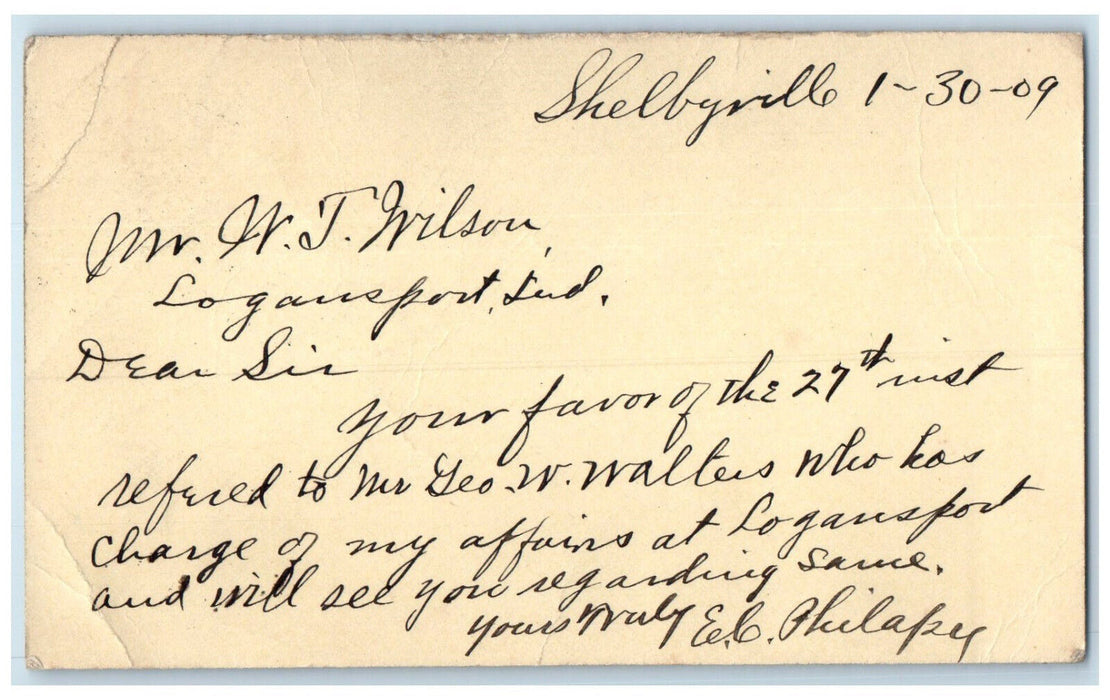 Shelbyville 1-30-09
Mr. W. T. Wilson,
Logansport, Ind.
Dear Sir
Your favor of the 27th inst
refered to Mr Geo. W. Walters who has
charge of my affairs at Logansport
and will see you regarding same.
Yours Truly E.C. Philapy